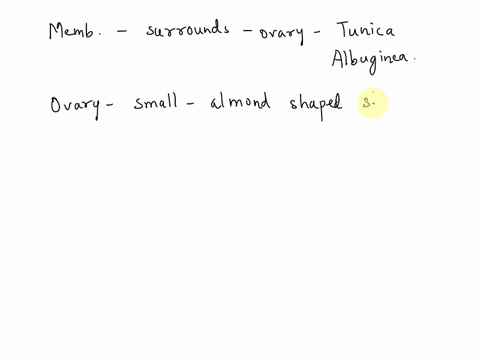 Memb. - surrounds - ovary - Tunica
Albuginea.
Ovary - small - almond shaped s.